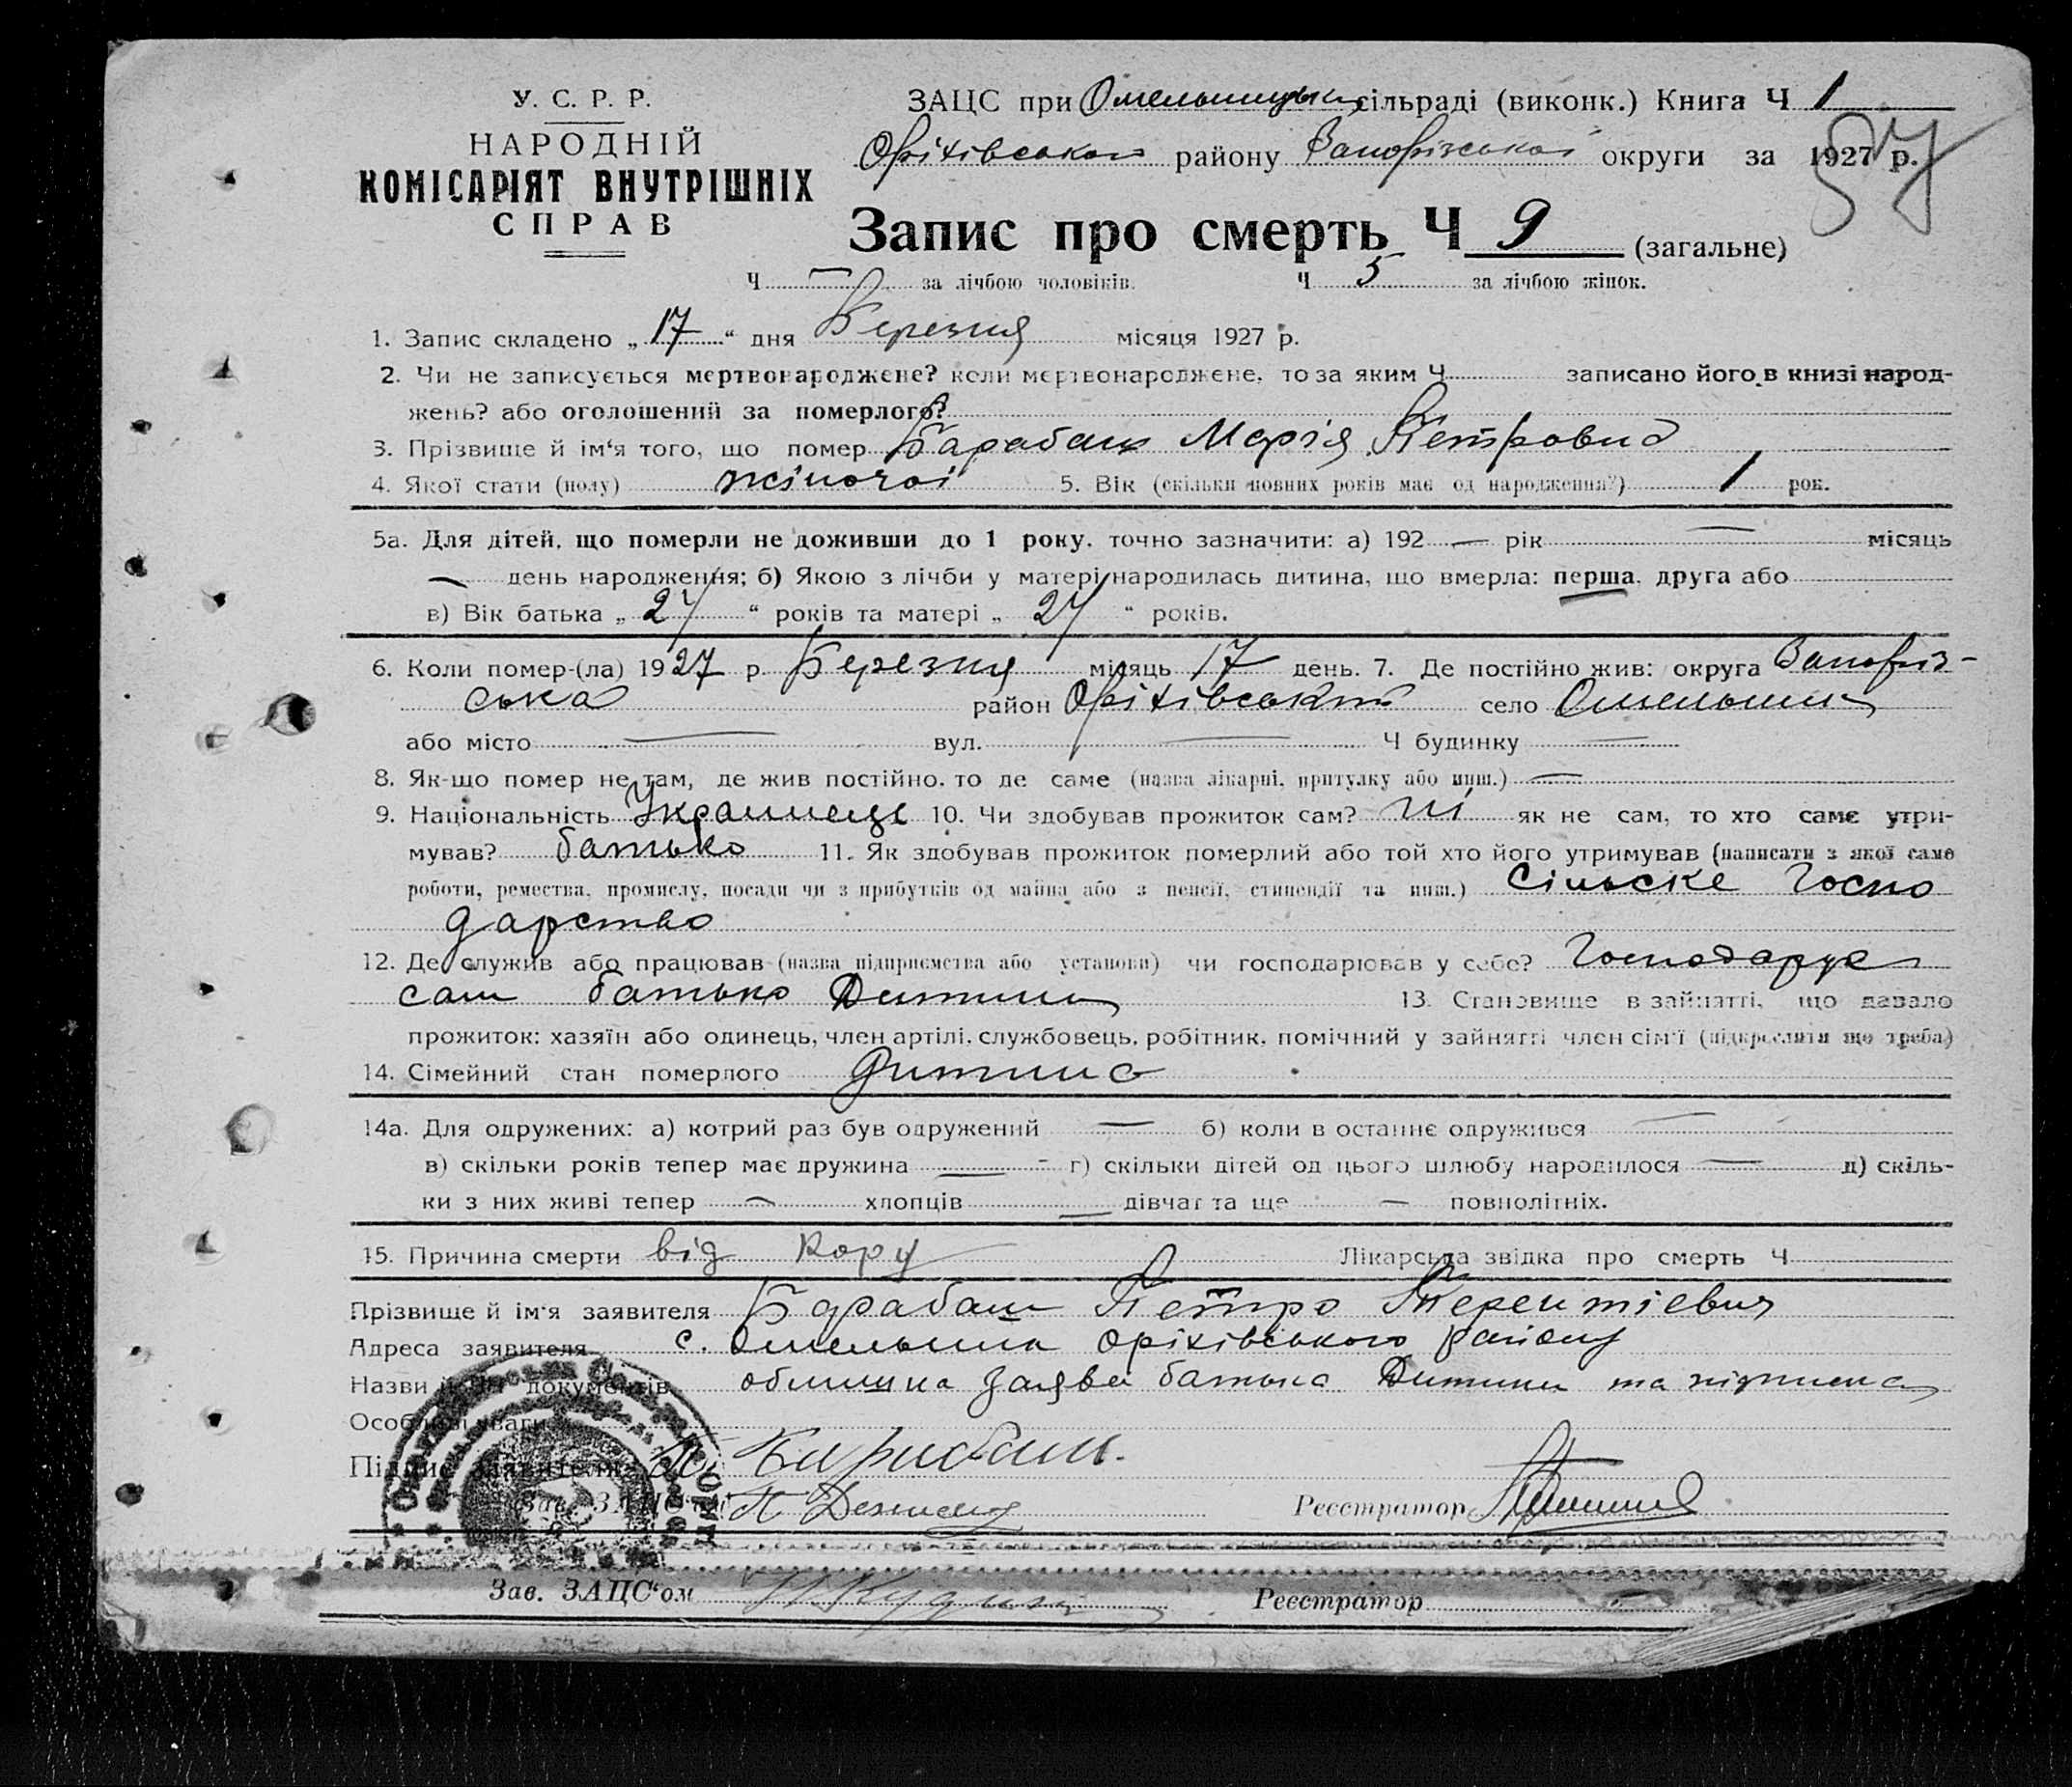 У. С. Р. Р.
НАРОДНІЙ
КОМІСАРІЯТ ВНУТРІШНІХ
СПРАВ
ЗАЦС при Омельницькій сільраді (виконк.) Книга Ч 1
Оріхівського району Запорізської округи за 1927 р.
57
Запис про смерть Ч 9 (загальне)
Ч — за лічбою чоловіків. Ч 5 за лічбою жінок.
1. Запис складено „ 17 “ дня Березня місяця 1927 р.
2. Чи не записується мертвонароджене? коли мертвонароджене, то за яким Ч записано його в книзі народ-
жень? або оголошений за померлого?
3. Прізвище й ім‘я того, що помер Барабаш Марія Петровна
4. Якої стати (полу) жіночоі 5. Вік (скільки повних років має од народження?) 1 рок.
5а. Для дітей, що померли не доживши до 1 року, точно зазначити: а) 192 — рік — місяць
— день народження; б) Якою з лічби у матері народилась дитина, що вмерла: перша, друга або
в) Вік батька „ 27 “ років та матері „ 27 “ років.
6. Коли помер-(ла) 1927 р. Березня місяць 17 день. 7. Де постійно жив: округа Запоріз-
ська район Оріхівський село Омельник
або місто — вул. — Ч будинку —
8. Як-що помер не там, де жив постійно, то де саме (назва лікарні, притулку або инш.) —
9. Національність Українець 10. Чи здобував прожиток сам? ні як не сам, то хто саме утри-
мував? батько 11. Як здобував прожиток померлий або той хто його утримував (написати з якої само
роботи, ремества, промислу, посади чи з прибутків од майна або з пенсії, стипендії та инш.) Сільске Госпо
дарство
12. Де служив або працював (назва підприємства або установи) чи господарював у себе? Господарує
сам батько Дитини 13. Становище в зайнятті, що давало
прожиток: хазяїн або одинець, член артілі, службовець, робітник, помічний у зайнятті член сім‘ї (підкреслити що треба)
14. Сімейний стан померлого Дитина
14а. Для одружених: а) котрий раз був одружений — б) коли в останнє одружився —
в) скільки років тепер має дружина — г) скільки дітей од цього шлюбу народилося — д) скіль-
ки з них живі тепер — хлопців — дівчат та ще — повнолітніх.
15. Причина смерти від Кору Лікарська звідка про смерть Ч
Прізвище й ім‘я заявителя Барабаш Петро Терентіевич
Адреса заявителя с. Омельник Оріхівського району
Назви й документів обмишна Заява батька Дитини та підписка
Особливі уваги
Підпис заявителя П. Барабаш.
Зав. ЗАЦС‘ом П Реєстратор
Зав. ЗАЦС‘ом Реєстратор